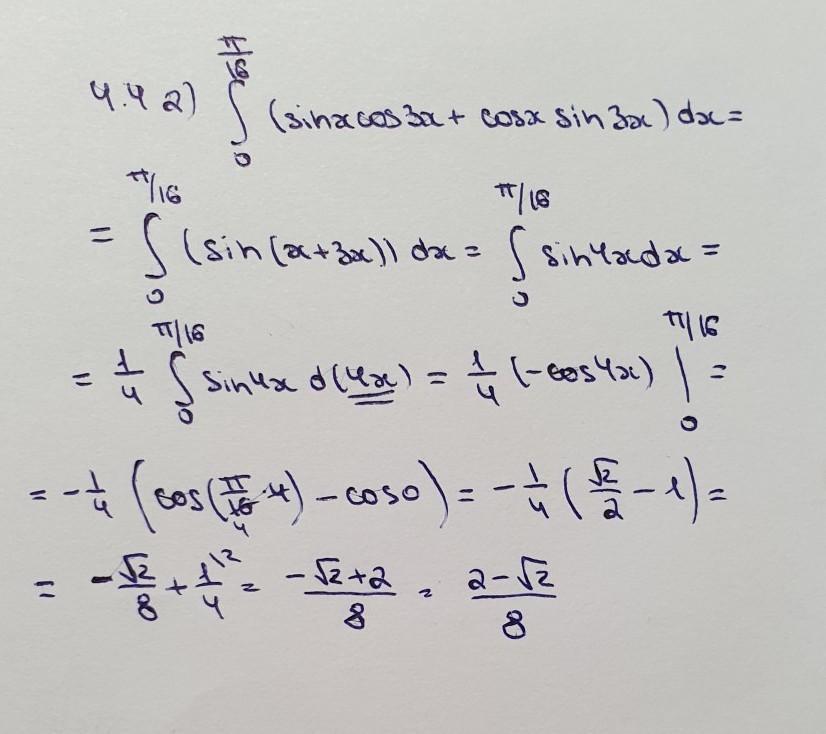 4.4 2) ∫_0^{π/16} (sinx cos3x + cosx sin3x) dx =
= ∫_0^{π/16} (sin(x+3x)) dx = ∫_0^{π/16} sin4x dx =
= 1/4 ∫_0^{π/16} sin4x d(4x) = 1/4 (-cos4x) |_0^{π/16} =
= -1/4 (cos(π/16 · 4) - cos0) = -1/4 (√2/2 - 1) =
= -√2/8 + 1/4^{\2} = (-√2+2)/8 = (2-√2)/8